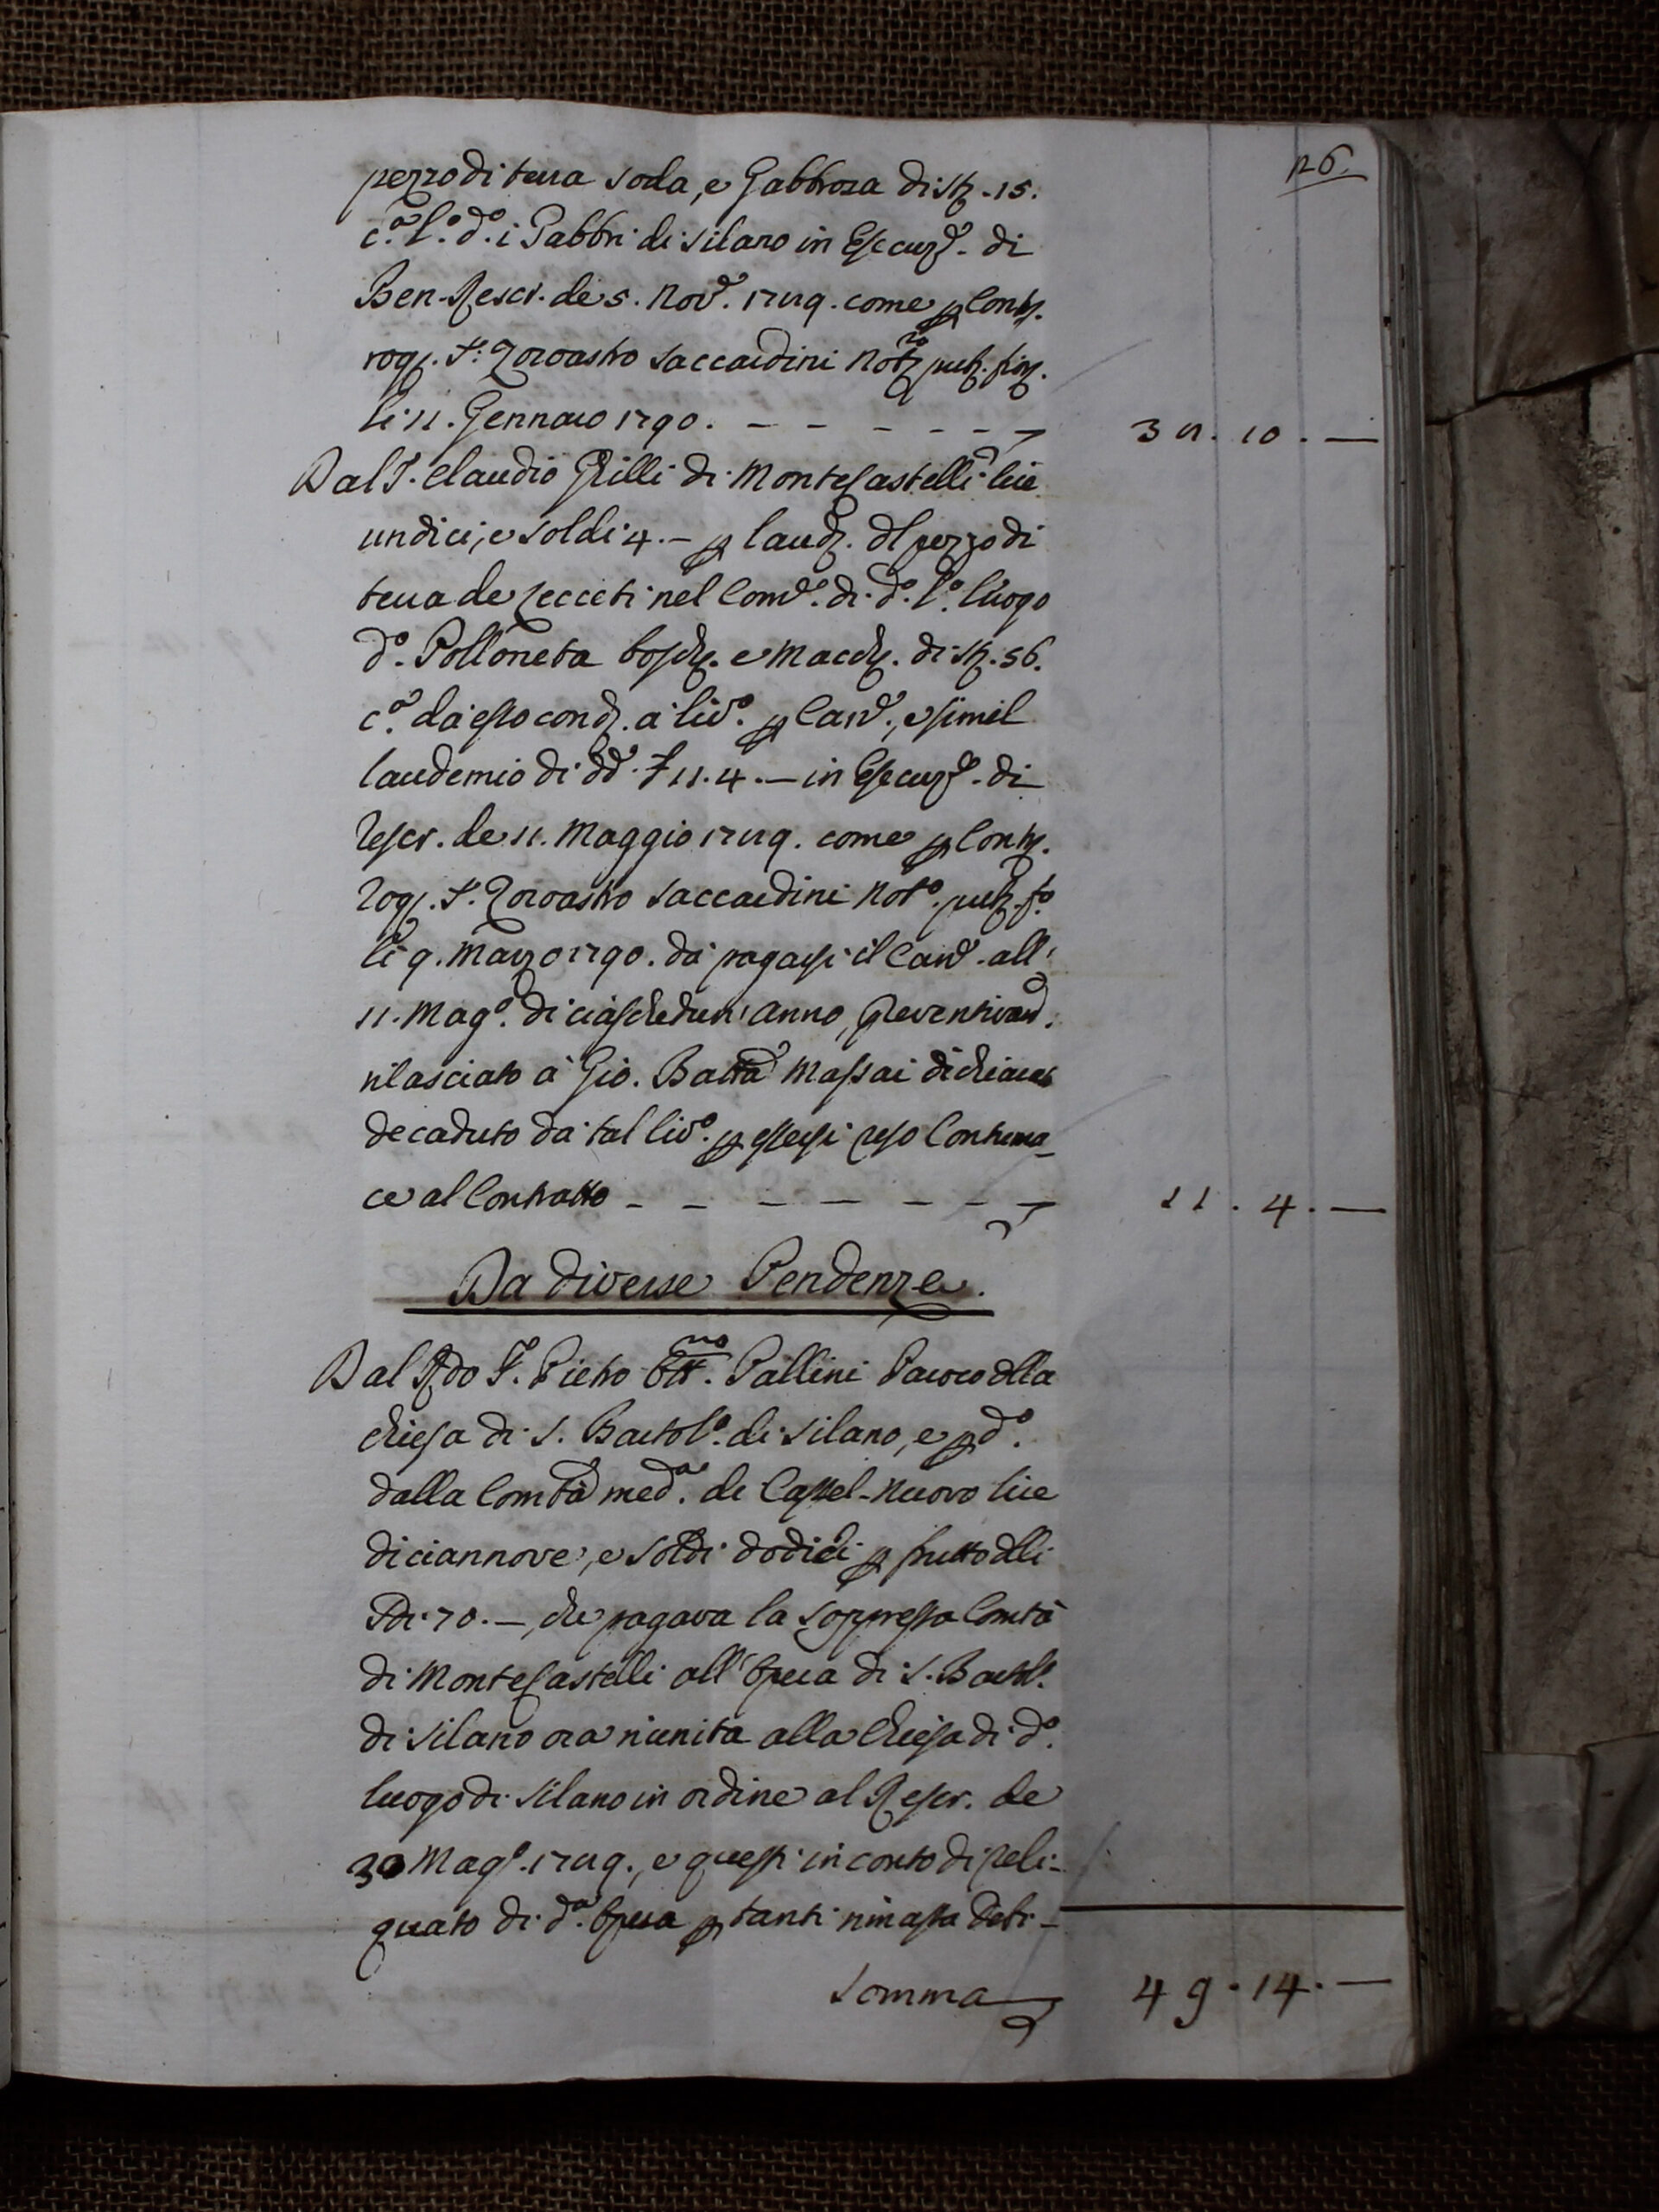 126.
pezzo di terra soda, e Gabbrosa di st. 15.
c.ª l.º d.º i Gabbri di Silano in Esecuz.e di
Ben. Rescr. de 5. Nov.e 1789. come p Contr.
rog. S.r Zoroastro Saccardini Not.ro pub. fior.
li 11. Gennaro 1790. - - - - - -
38. 10. —
Dal S.r Claudio Grilli di MonteCastelli lire
undici, e soldi 4. — p laud. dl pezzo di
terra de Lecceti nel Com.e di d.º l.º luogo
d.º Polloneta bosch. e macch. di st. 56.
c.ª da esso cond. a liv.º p Can.e, e simil
laudemio di dd.e £ 11. 4. — in Esecuz.e di
Rescr. de 11. Maggio 1789. come p Contr.
Rog. S.r Zoroastro Saccardini Not.º pub. f.º
li 9. Marzo 1790. da pagarsi il Can.e all'
11. Mag.º di ciaschedun' anno, preventivam.
rilasciato a Gio. Batta Massai dichiarato
decaduto da tal liv.º p essersi reso Contuma-
ce al Contratto - - - - - - -
11. 4. —
Da diverse Pendenze.
Dal Rdo S.r Pietro Ott.no Pallini Paroco dlla
Chiesa di S. Bartol.º di Silano, e p d.º
dalla Comtà med.ª di Castel-Nuovo lire
diciannove, e soldi dodici p frutto dlli
Sdi 70. —, che pagava la soppressa Comtà
di MonteCastelli all'Opera di S. Bartol.º
di Silano ora riunita alla Chiesa di d.º
luogo di Silano in ordine al Rescr. de
30 Mag.º 1789., e questi in conto di reli-
quato di d.ª Opera p tanti rimasta Debi-
Somma
49. 14. —